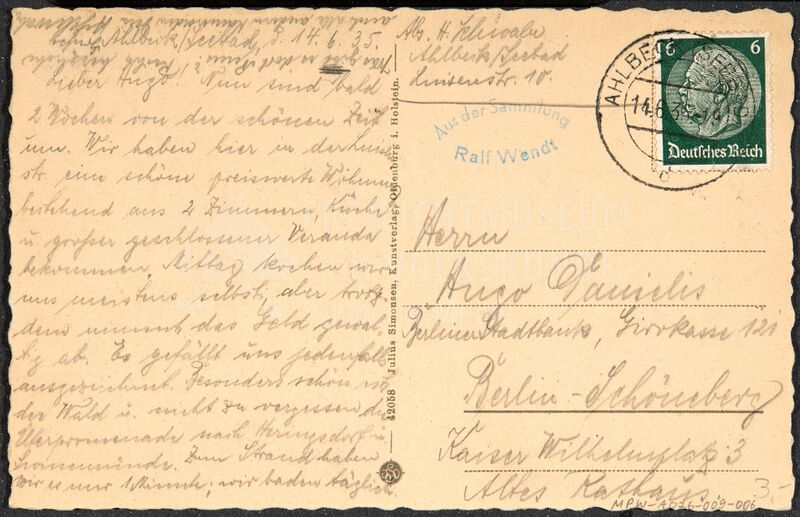 Ahlbeck/Seebad, d. 14.6.35.
Lieber Hugo! Nun sind bald
2 Wochen von der schönen Zeit
um. Wir haben hier in der Luisen
str. eine schöne preiswerte Wohnung
bestehend aus 2 Zimmern, Küche
u. großer geschlossener Veranda
bekommen. Mittag kochen wir
uns meistens selbst, aber trotz-
dem nimmt das Geld gewal-
tig ab. Es gefällt uns jedenfalls
ausgezeichnet. Besonders schön ist
der Wald u. nicht zu vergessen die
Uferpromenade nach Heringsdorf u.
Swinemünde. Zum Strand haben
wir es nur 1 Minute; wir baden täglich.
Was gibt es dort Neues? herzliche
und alle andern
Abs. H. Schwabe
Ahlbeck/Seebad
Luisenstr. 10.
Aus der Sammlung
Ralf Wendt
AHLBECK SEEBAD
14.6.35
6 6
Deutsches Reich
Herrn
Hugo Danielis
Berliner Stadtbank, Girokasse 121
Berlin-Schöneberg
Kaiser Wilhelmplatz 3
Altes Rathaus.
3.-
MPW-AD26-009-006
42058 Julius Simonsen, Kunstverlag, Oldenburg i. Holstein.